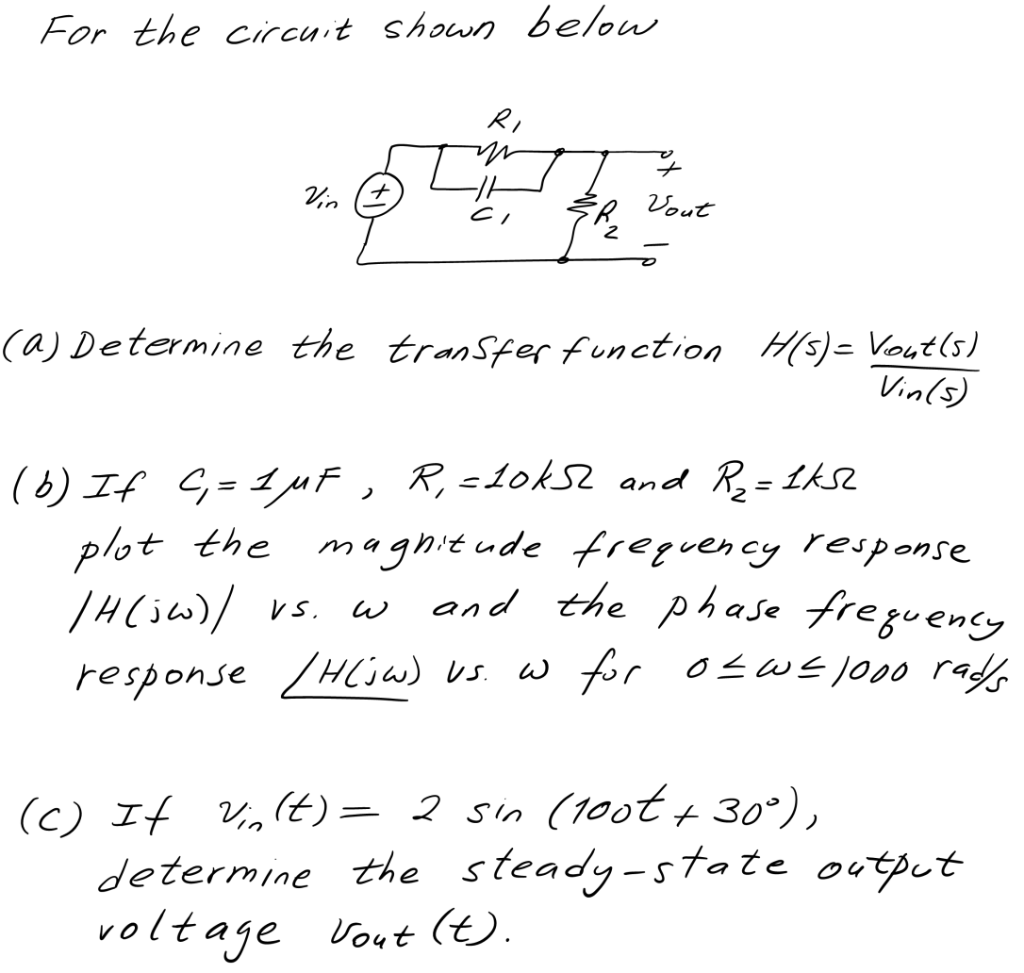 For the circuit shown below
R1
Vin
+
C1
R2
+
Vout
−
(a) Determine the transfer function H(s) = Vout(s)
Vin(s)
(b) If C1 = 1 μF , R1 = 10kΩ and R2 = 1kΩ
plot the magnitude frequency response
|H(jω)| vs. ω and the phase frequency
response ∠H(jω) vs. ω for 0 ≤ ω ≤ 1000 rad/s
(c) If vin(t) = 2 sin (100t + 30°),
determine the steady-state output
voltage vout (t).